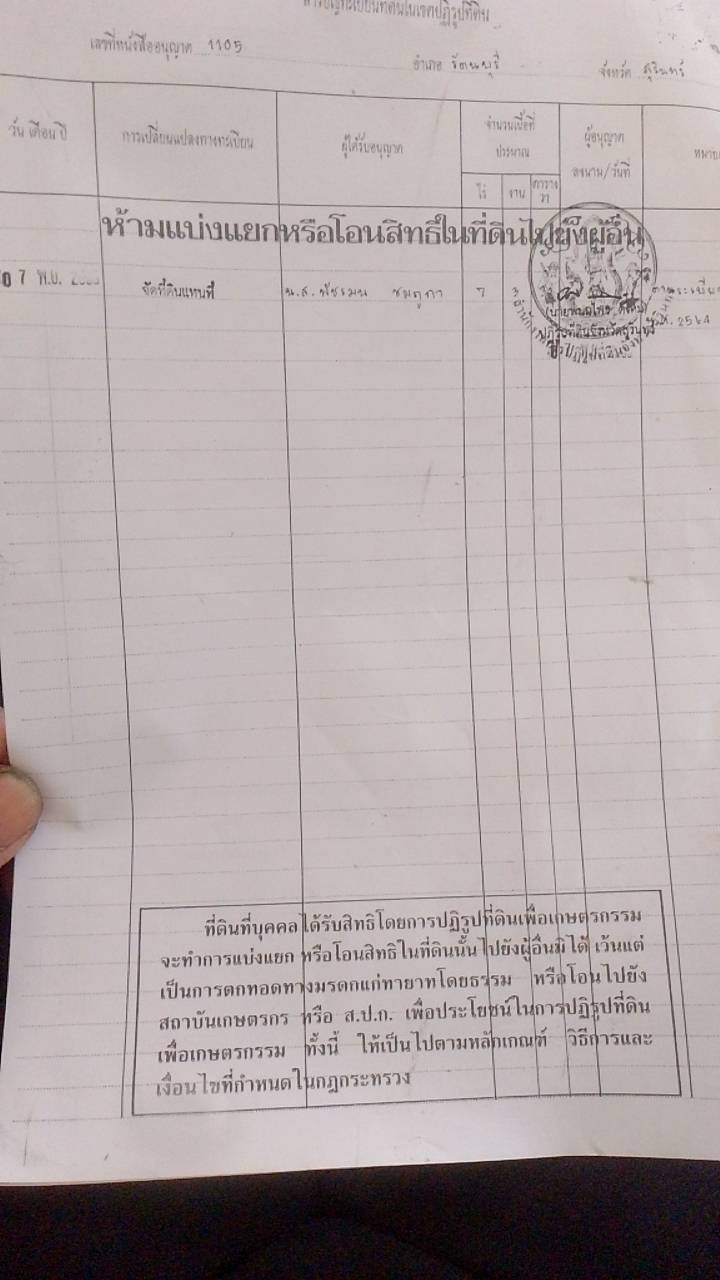 สารบัญทะเบียนที่ดินในเขตปฏิรูปที่ดิน
เลขที่หนังสืออนุญาต 1105 อำเภอ รัตนบุรี จังหวัด สุรินทร์
วัน เดือน ปี การเปลี่ยนแปลงทางทะเบียน ผู้ได้รับอนุญาต จำนวนเนื้อที่ ประมาณ ไร่ งาน ตาราง วา ผู้อนุญาต ลงนาม/วันที่
ห้ามแบ่งแยกหรือโอนสิทธิในที่ดินไปยังผู้อื่น
7 พ.ย. จัดที่ดินแทนที่ น.ส. 7 3
2564
ที่ดินที่บุคคลได้รับสิทธิโดยการปฏิรูปที่ดินเพื่อเกษตรกรรม
จะทำการแบ่งแยก หรือโอนสิทธิในที่ดินนั้นไปยังผู้อื่นมิได้ เว้นแต่
เป็นการตกทอดทางมรดกแก่ทายาทโดยธรรม หรือโอนไปยัง
สถาบันเกษตรกร หรือ ส.ป.ก. เพื่อประโยชน์ในการปฏิรูปที่ดิน
เพื่อเกษตรกรรม ทั้งนี้ ให้เป็นไปตามหลักเกณฑ์ วิธีการและ
เงื่อนไขที่กำหนดในกฎกระทรวง